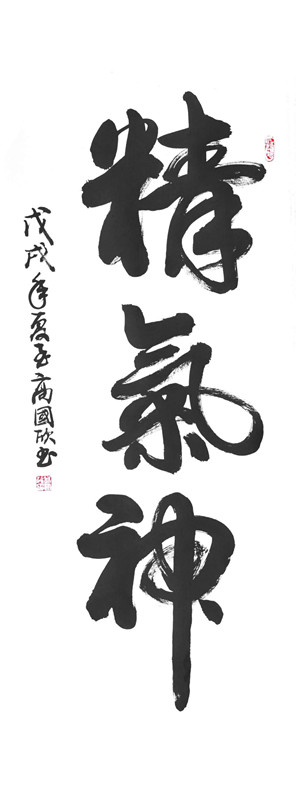 精氣神
戊戌年夏子高國欣书